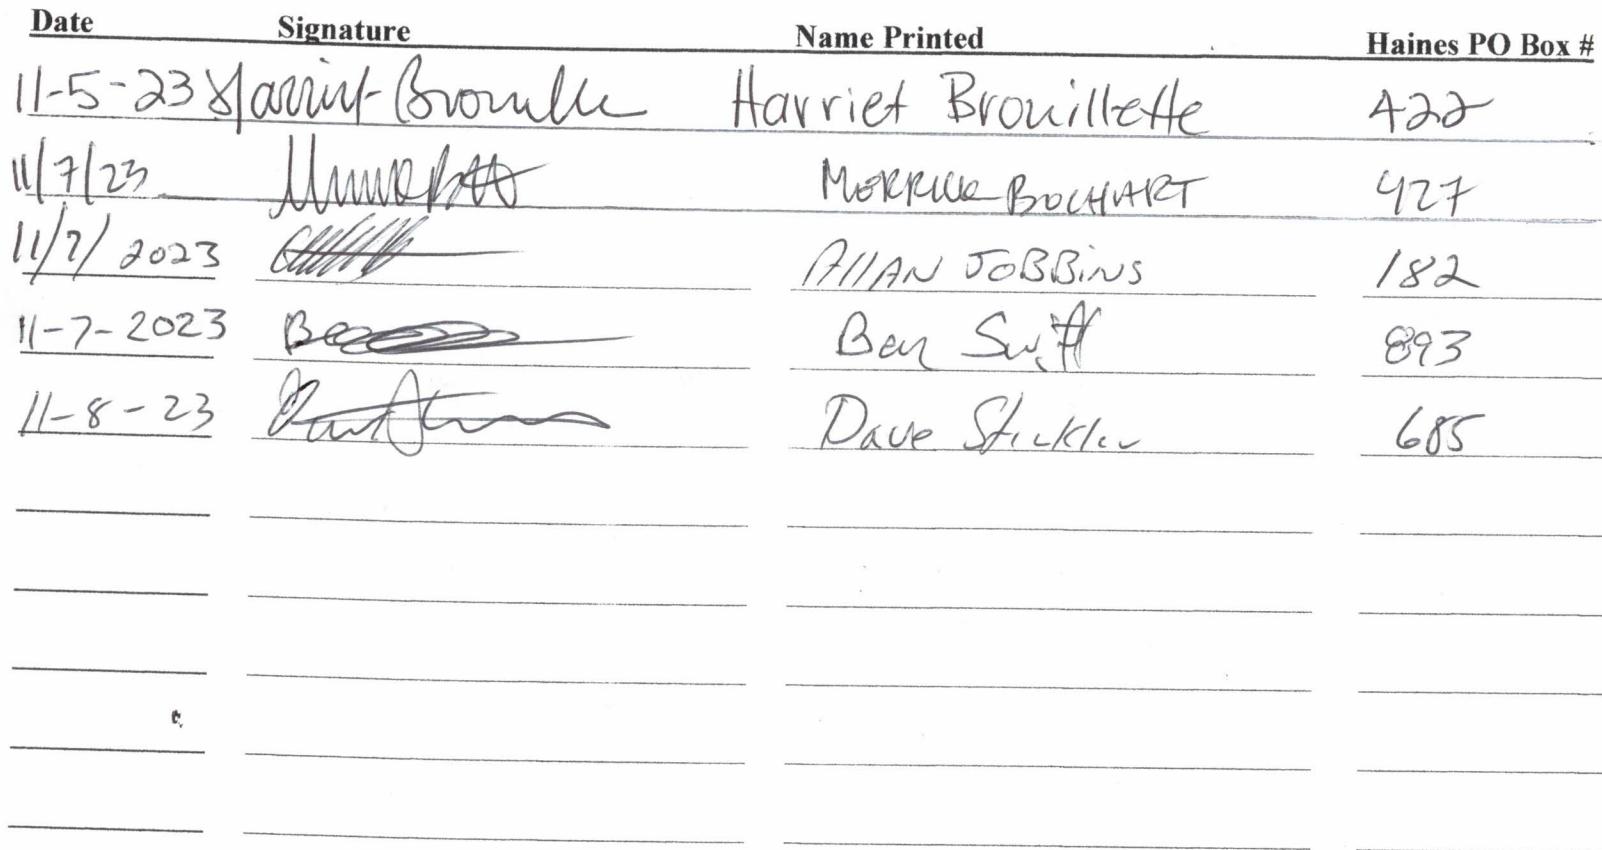 Date Signature Name Printed Haines PO Box #
11-5-23 Harriet Brouille Harriet Brouillette 422
11/7/23 MERRICK BOCHART 427
11/7/2023 Allan JOBBINS 182
11-7-2023 Ben Swift 893
11-8-23 Dave Stickler 685